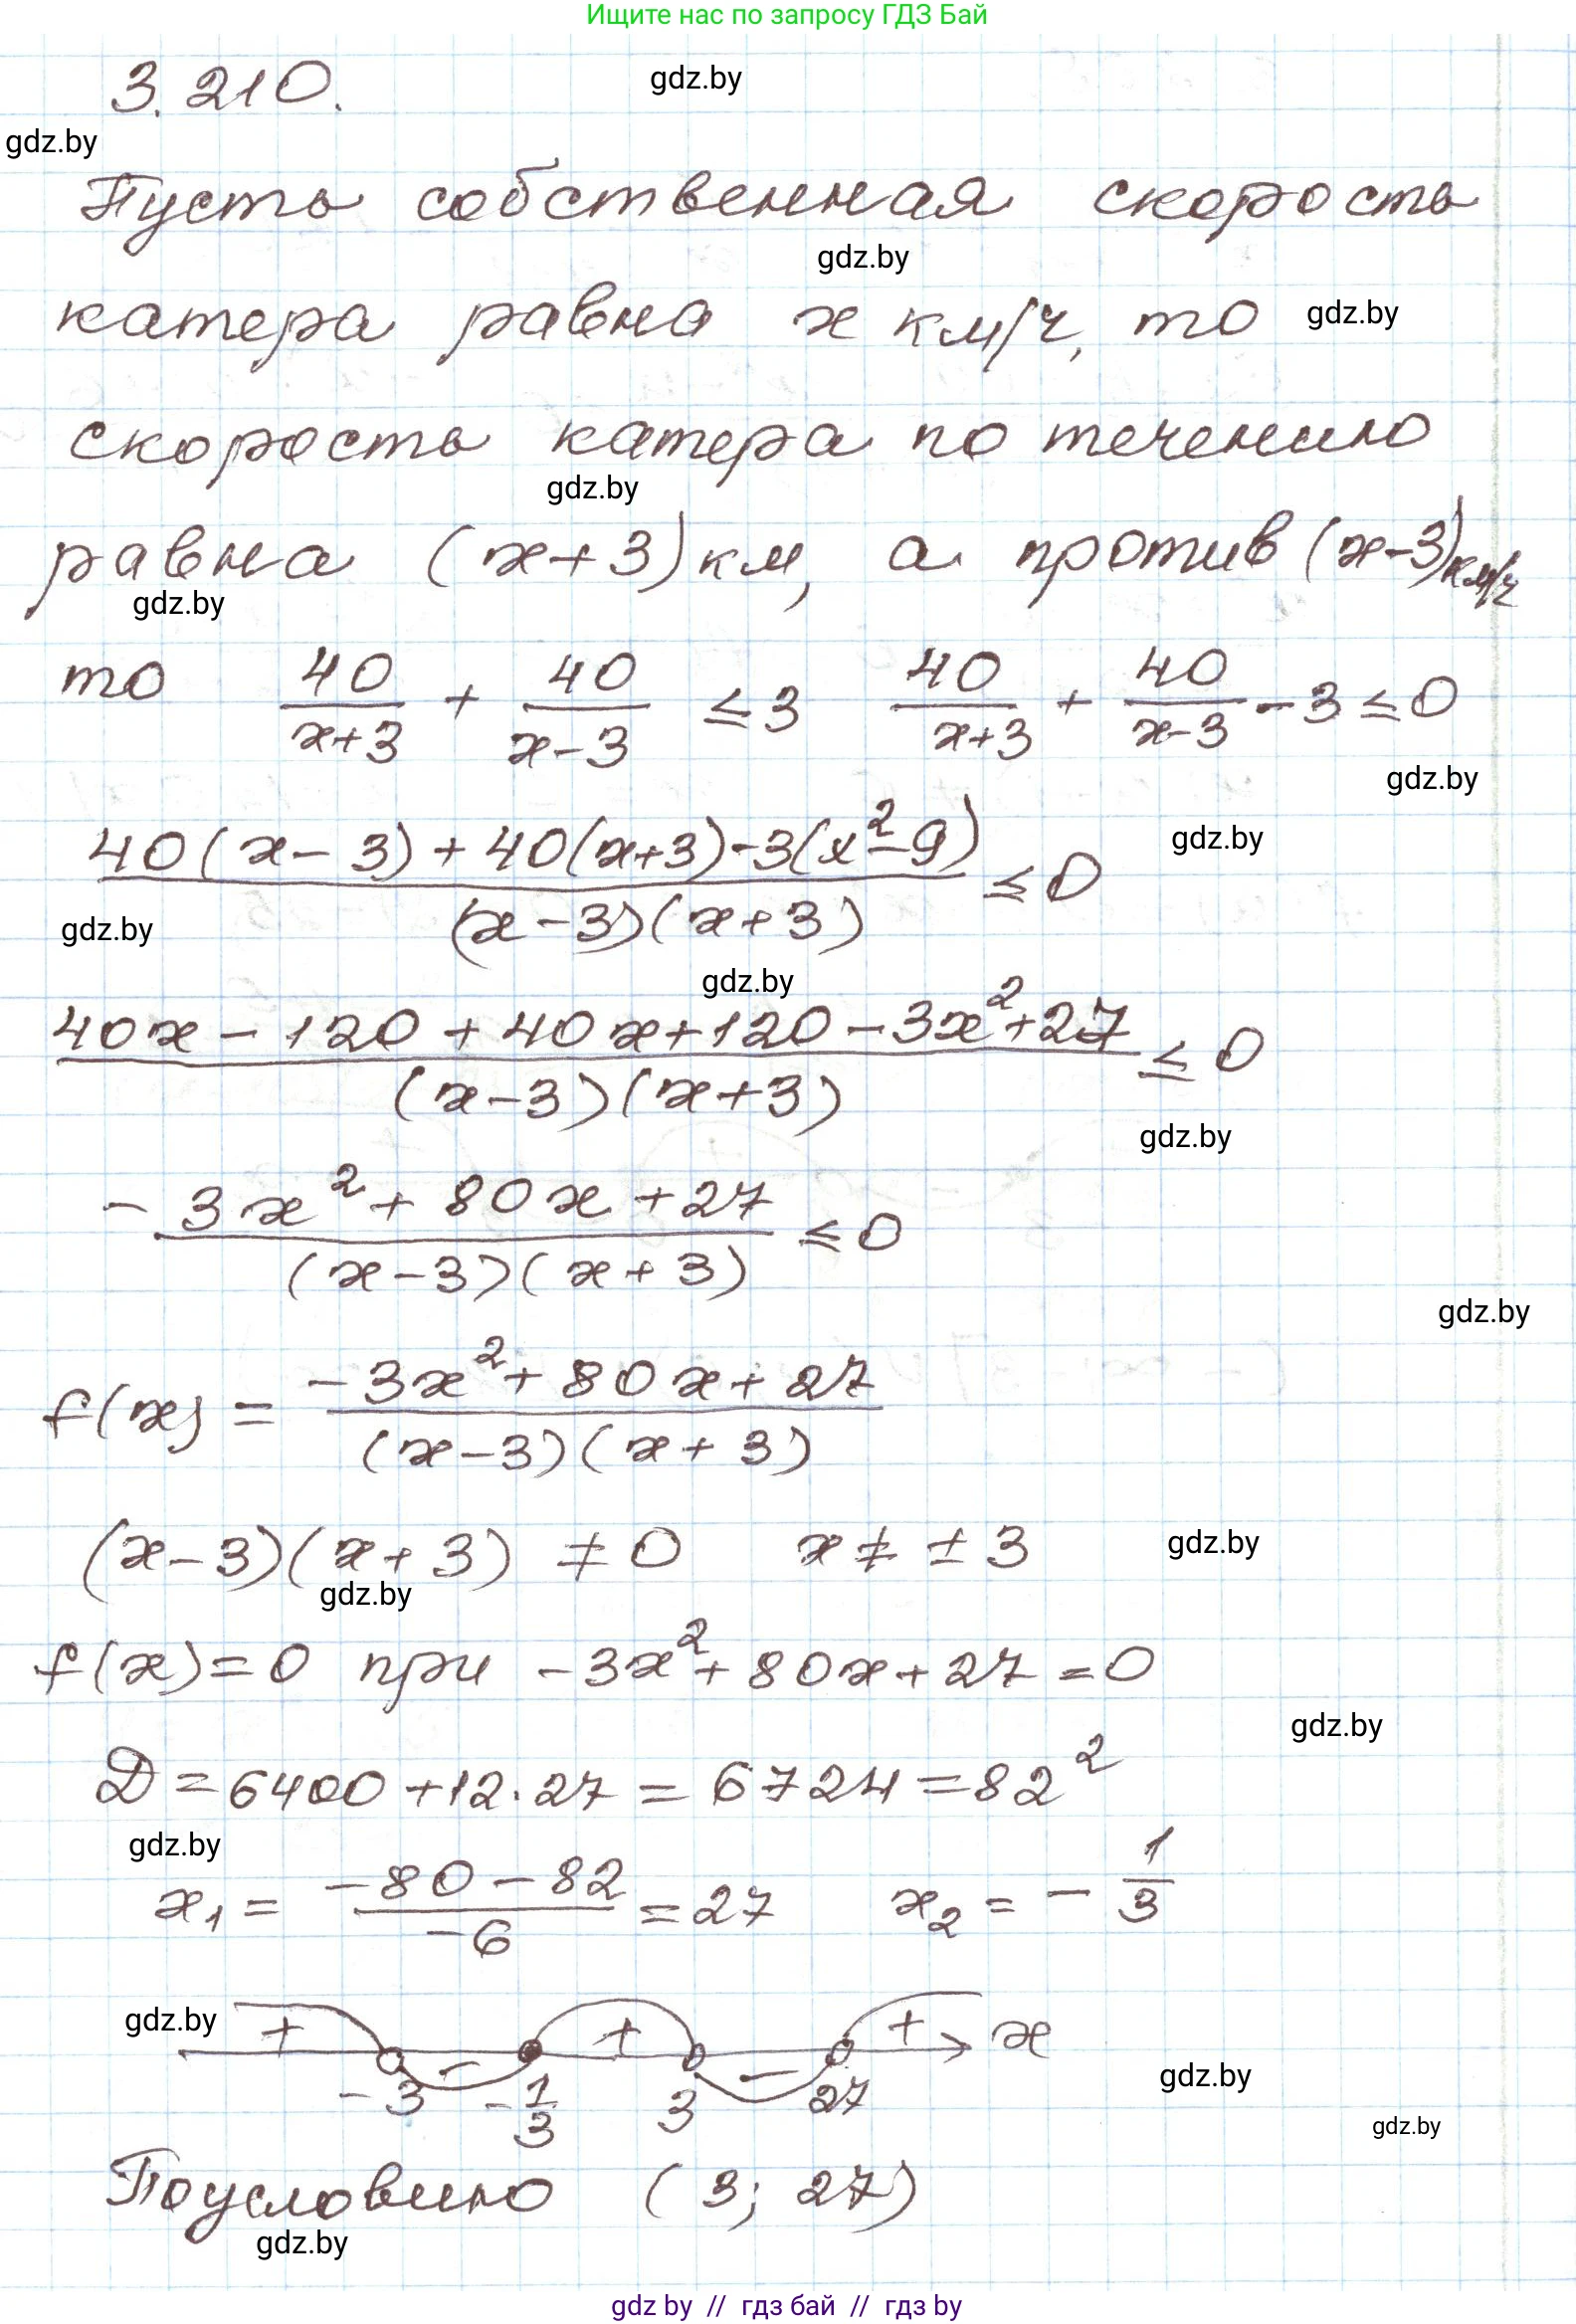 Ищите нас по запросу ГДЗ Бай
3.210.
gdz.by
gdz.by
Пусть собственная скорость
gdz.by
катера равна x км/ч, то
gdz.by
скорость катера по течению
gdz.by
равна (x+3) км, а против (x-3) км/ч
gdz.by
то 40/(x+3) + 40/(x-3) ≤ 3 40/(x+3) + 40/(x-3) - 3 ≤ 0
gdz.by
gdz.by
(40(x-3) + 40(x+3) - 3(x²-9))/((x-3)(x+3)) ≤ 0
gdz.by
gdz.by
(40x - 120 + 40x + 120 - 3x² + 27)/((x-3)(x+3)) ≤ 0
gdz.by
(-3x² + 80x + 27)/((x-3)(x+3)) ≤ 0
gdz.by
f(x) = (-3x² + 80x + 27)/((x-3)(x+3))
(x-3)(x+3) ≠ 0 x ≠ ±3
gdz.by
gdz.by
f(x) = 0 при -3x² + 80x + 27 = 0
gdz.by
D = 6400 + 12·27 = 6724 = 82²
gdz.by
x₁ = (-80-82)/-6 = 27 x₂ = -1/3
gdz.by
+ - + - + x
-3 -1/3 3 27
gdz.by
gdz.by
По условию (3; 27)
gdz.by
gdz by // гдз бай // гдз by